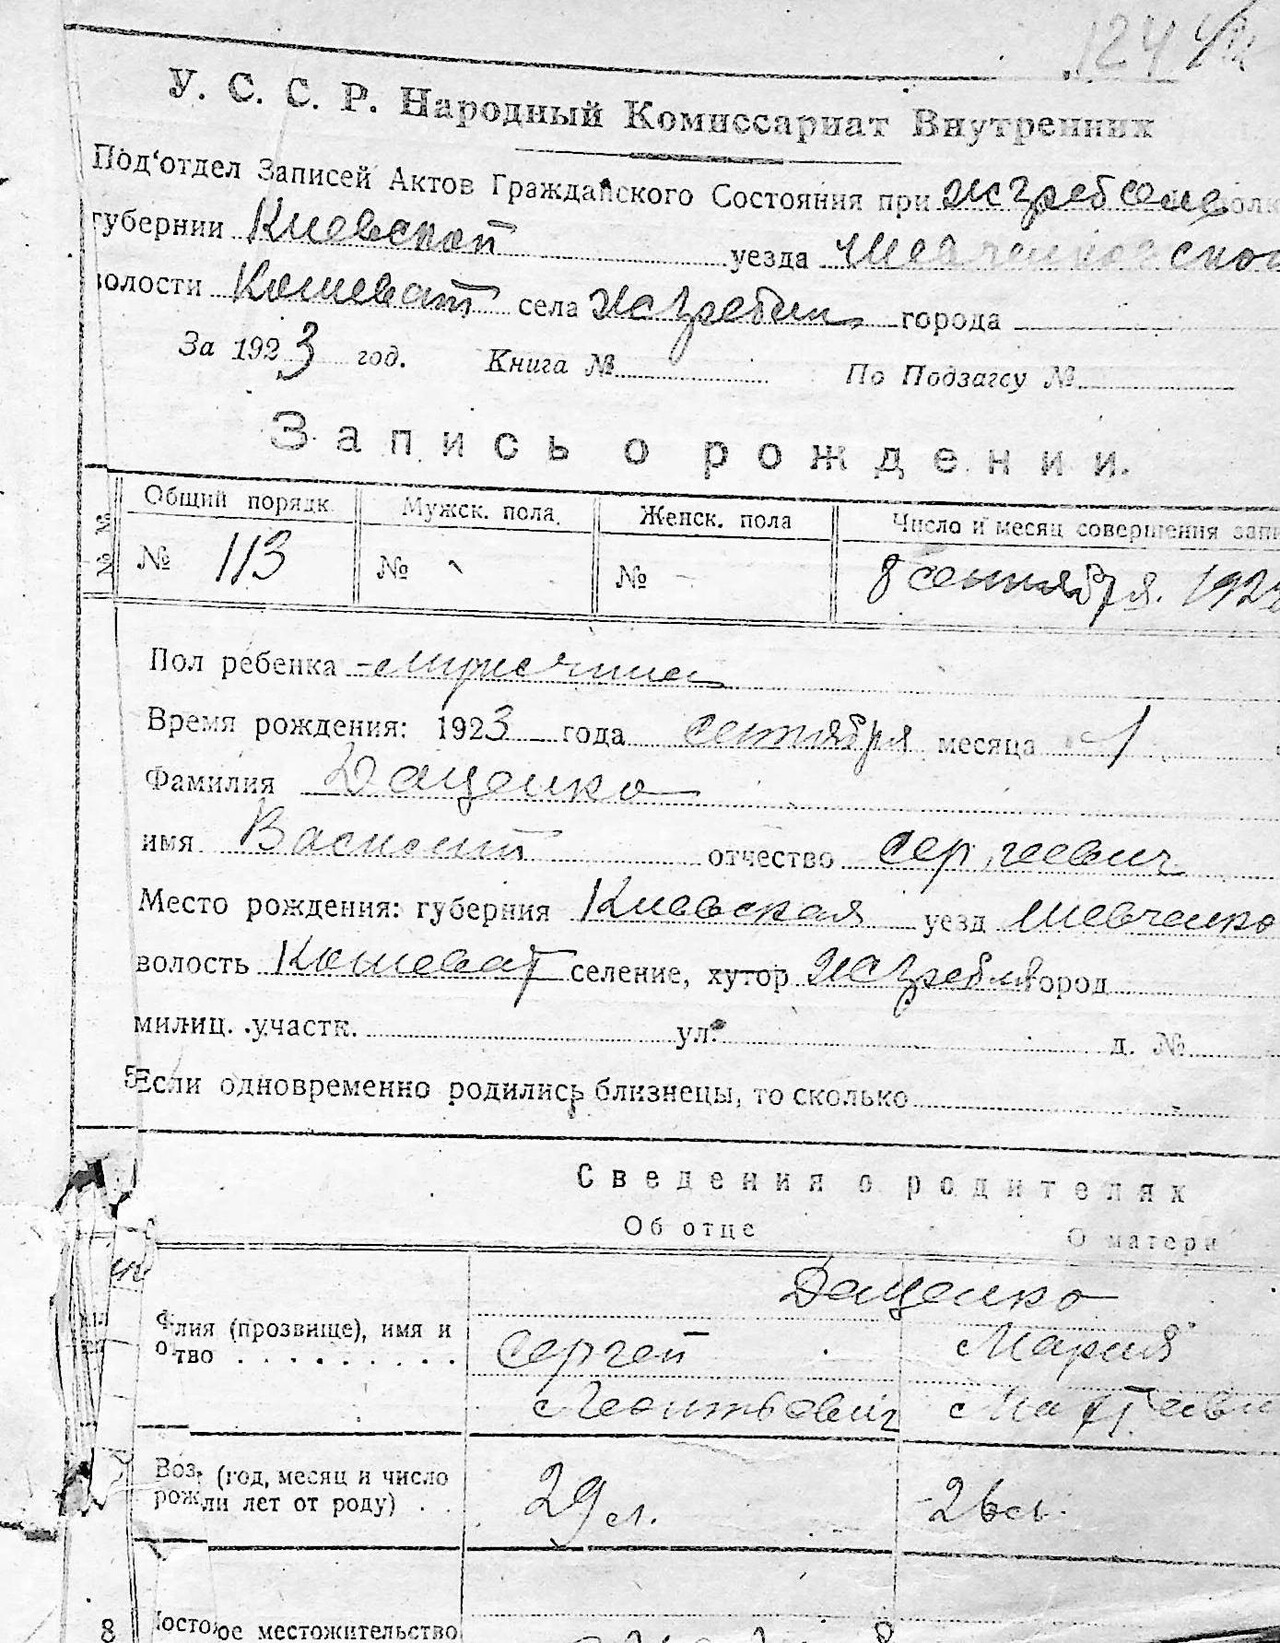 124
У. С. С. Р. Народный Комиссариат Внутренних
Под'отдел Записей Актов Гражданского Состояния при
губернии Киевской уезда Шевченковской
волости Кошеват села города
За 1923 год. Книга № По Подзагсу №
Запись о рождении.
Общий порядк. Мужск. пола. Женск. пола Число и месяц совершения запи
№ 113 № № 8 сентября. 192
Пол ребенка
Время рождения: 1923 года сентября месяца 1
Фамилия Даценко
имя Василий отчество Сергеевич
Место рождения: губерния Киевская уезд Шевченко
волость Кошеват селение, хутор город
милиц. участк. ул. д. №
Если одновременно родились близнецы, то сколько
Сведения о родителях
Об отце О матери
Даценко
лия (прозвище), имя и Сергей Мария
тво Леонтьович Матвеев
Воз. (год, месяц и число 29 л. 26 л.
рож ли лет от роду)
8 Посто ое местожительство